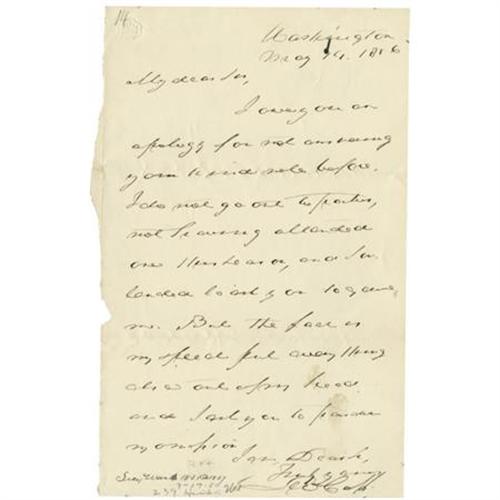 Washington
May 19. 18 6
My dear Sir,
I owe you an
apology for not answering
your kind note before.
I do not go out to parties,
not having attended
one this season, and In
tended to ask you to excuse
me. But the fact is
my speed put everything
else out of my head
and I ask you to pardon
my omission
I am, Dear Sir,
Truly yours